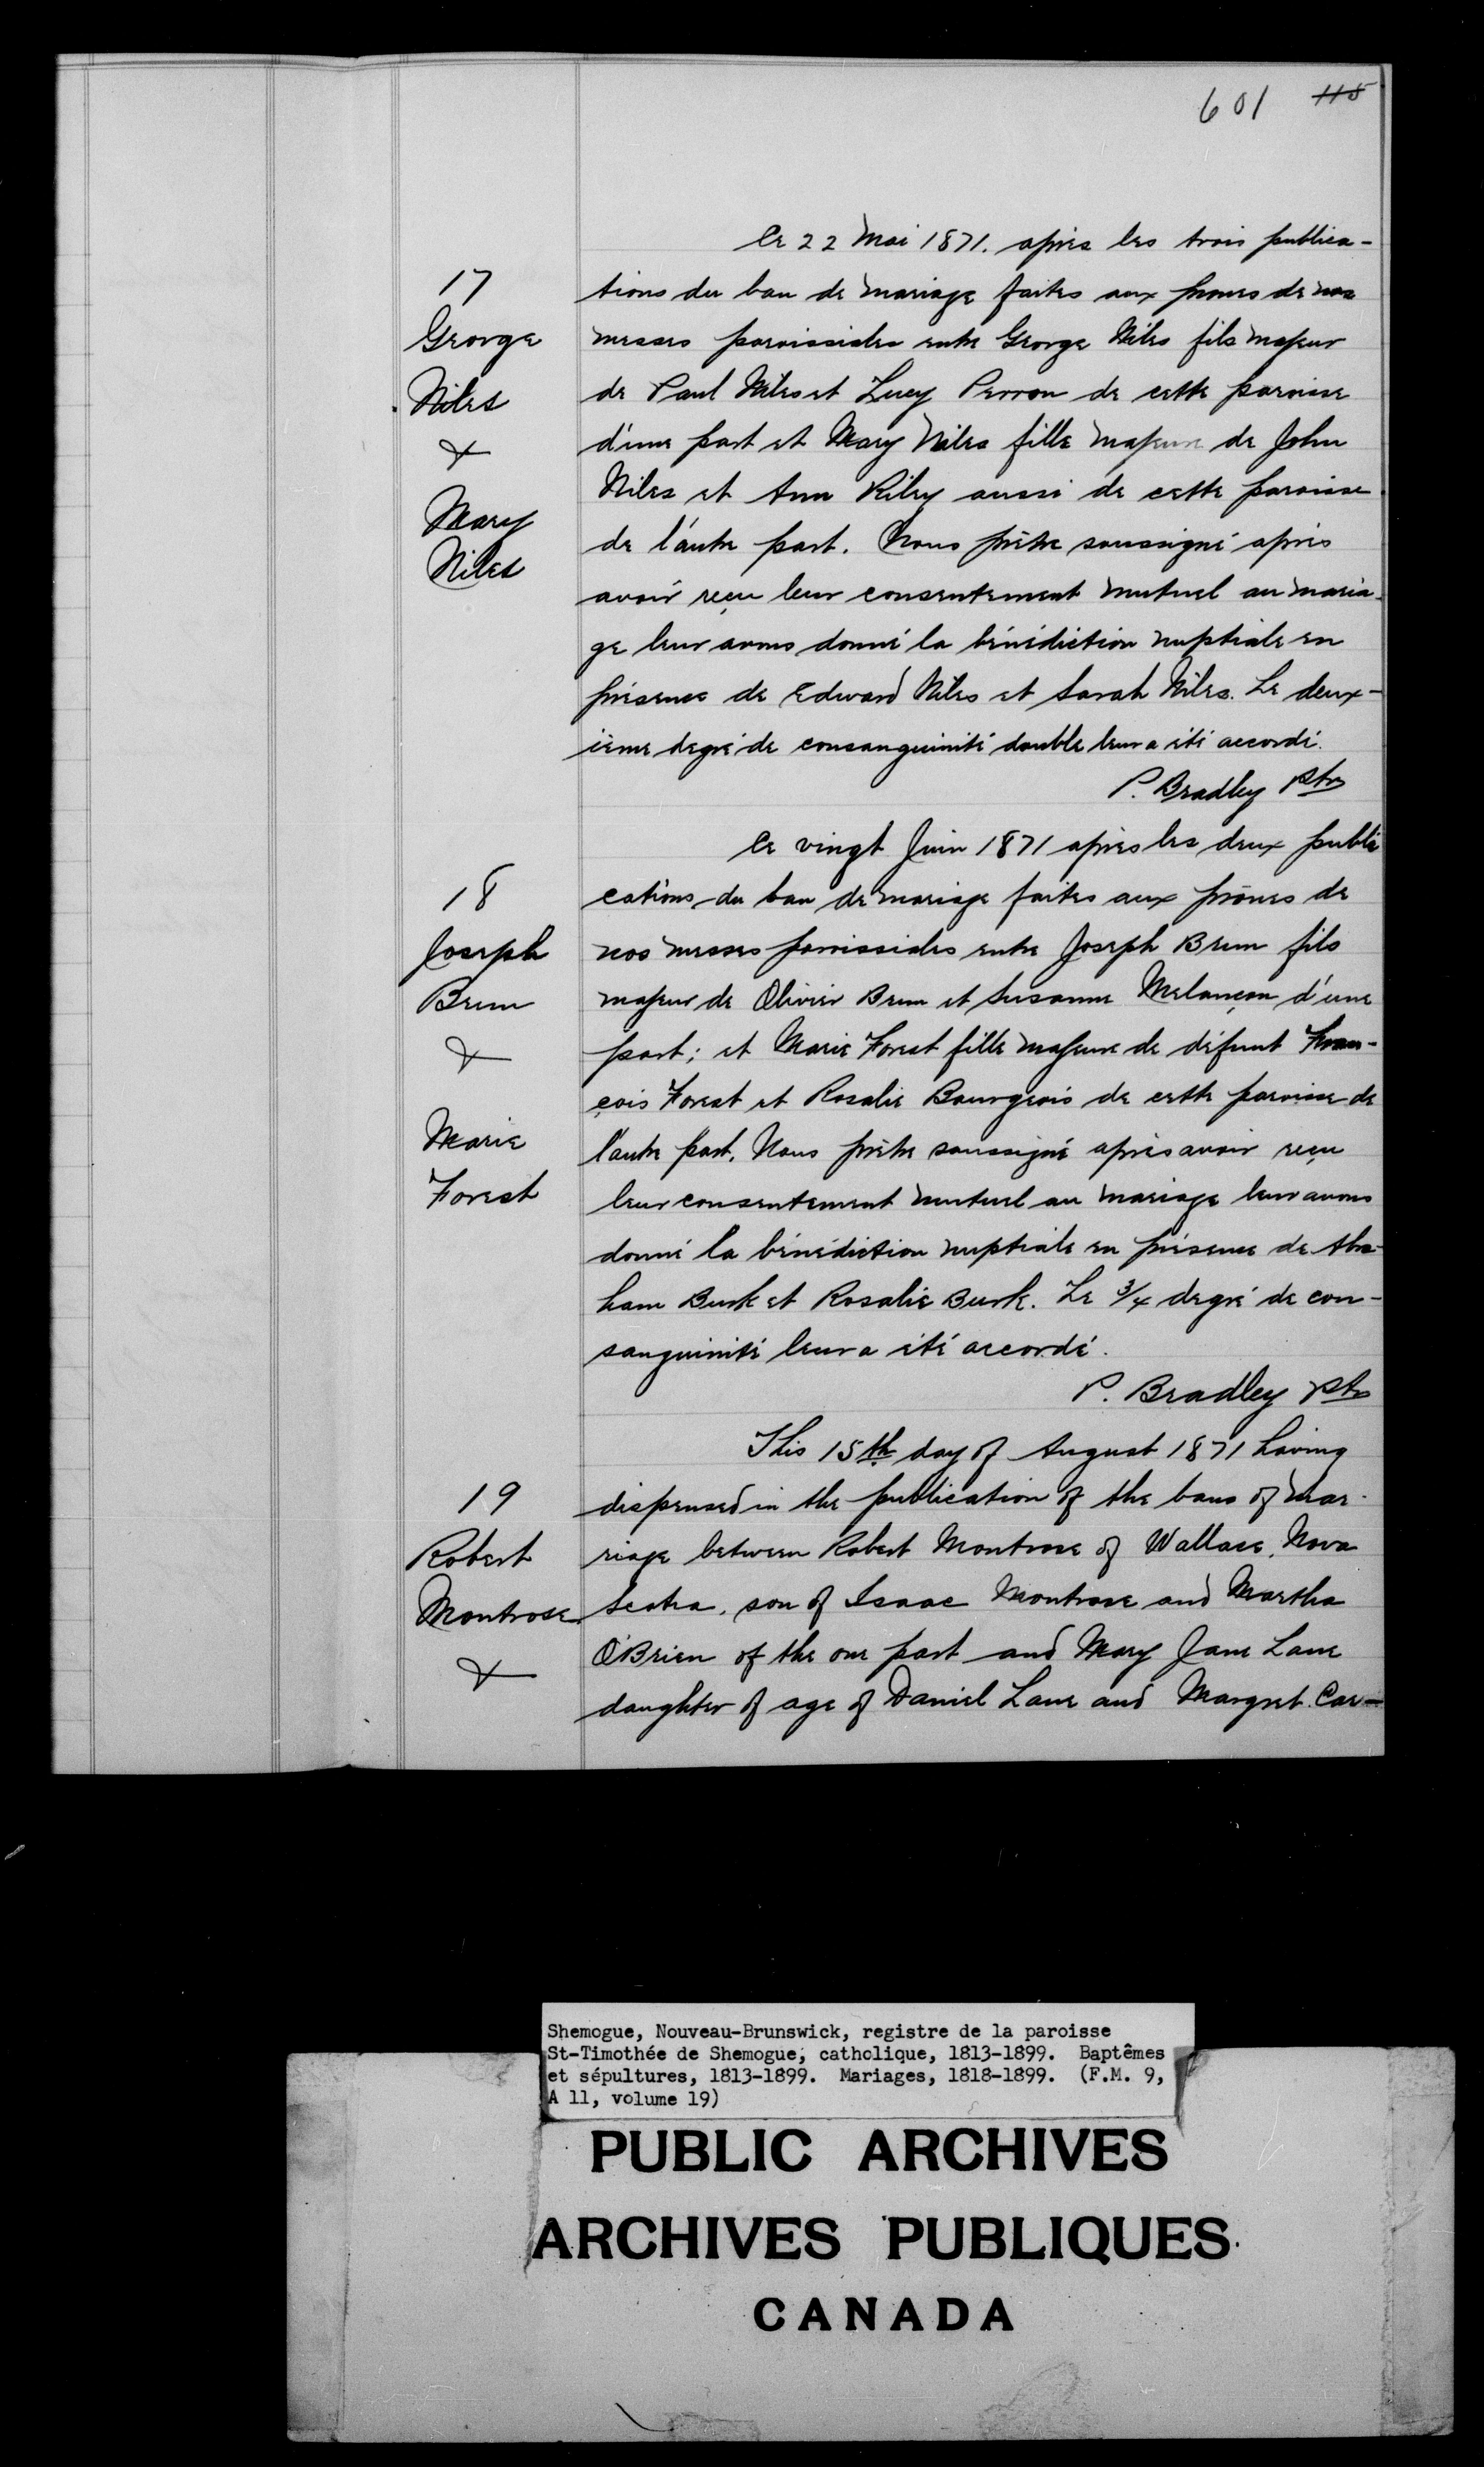 601 115
Ce 22 Mai 1871. après les trois publica-
tions du ban de mariage faites aux prones de nos
messes paroissiales entre George Niles fils majeur
de Paul Niles et Lucy Perron de cette paroisse
d'une part et Mary Niles fille majeure de John
Niles et Ann Riley aussi de cette paroisse
de l'autre part. Nous prêtre soussigné après
avoir reçu leur consentement mutuel au maria-
ge leur avons donné la bénédiction nuptiale en
présence de Edward Niles et Sarah Niles. Le deux-
ième degré de consanguinité double leur a été accordé.
P. Bradley Ptre
17
George
Niles
&
Mary
Niles
Ce vingt Juin 1871 après les deux publi
cations du ban de mariage faites aux prônes de
nos messes paroissiales entre Joseph Brun fils
majeur de Olivier Brun et Susanne Melançon d'une
part; et Marie Forest fille majeure de défunt Fran-
çois Forest et Rosalie Bourgeois de cette paroisse de
l'autre part. Nous prêtre soussigné après avoir reçu
leur consentement mutuel au mariage leur avons
donné la bénédiction nuptiale en présence de Abra-
ham Burk et Rosalie Burk. Le 3/4 degré de con-
sanguinité leur a été accordé.
P. Bradley Ptre
18
Joseph
Brun
&
Marie
Forest
This 15th day of August 1871 having
dispensed in the publication of the bans of mar-
riage between Robert Montrose of Wallace, Nova
Scotia, son of Isaac Montrose and Martha
O'Brien of the one part and Mary Jane Lane
daughter of age of Daniel Lane and Margret Car-
19
Robert
Montrose
&
Shemogue, Nouveau-Brunswick, registre de la paroisse
St-Timothée de Shemogue, catholique, 1813-1899. Baptêmes
et sépultures, 1813-1899. Mariages, 1818-1899. (F.M. 9,
A 11, volume 19)
PUBLIC ARCHIVES
ARCHIVES PUBLIQUES
CANADA